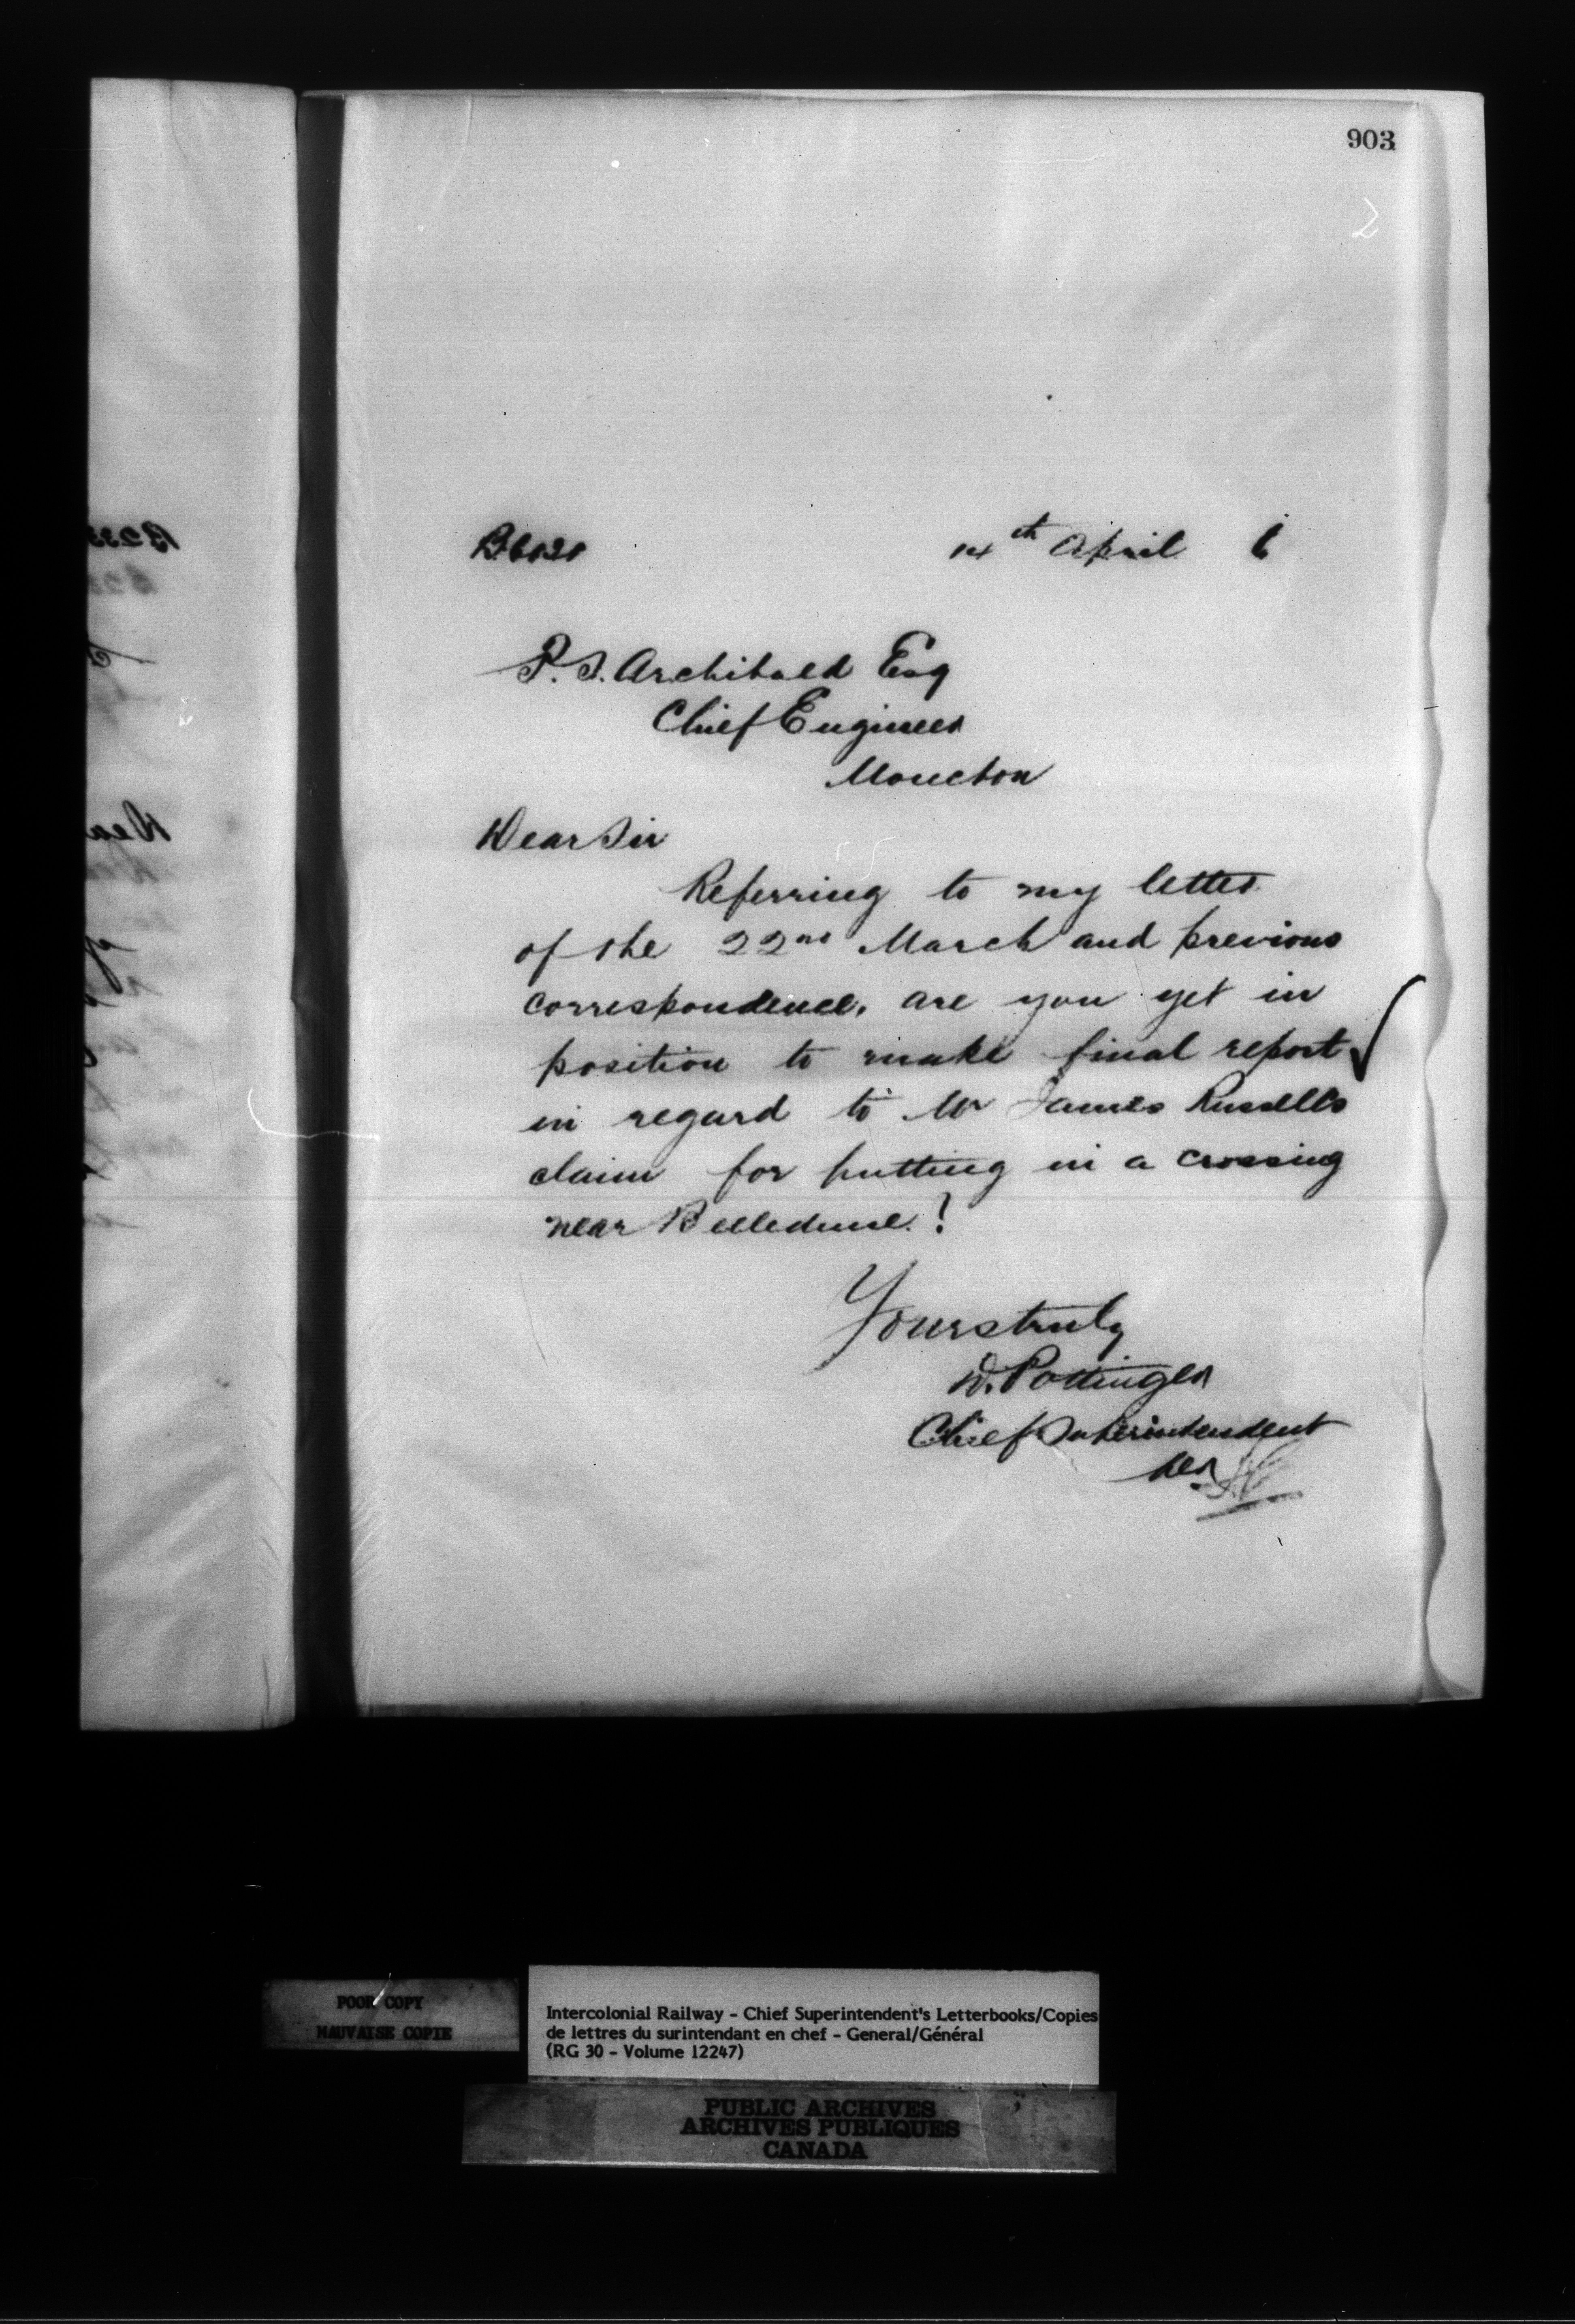 903
B6121
14th April 6
P.S. Archibald Esq
Chief Engineer
Moncton
Dear Sir
Referring to my letter
of the 22nd March and previous
correspondence, are you yet in
position to make final report
in regard to Mr James Russell's
claim for putting in a crossing
near Belledune?
Yours truly
D. Pottinger
Chief Superintendent
per
POOR COPY
MAUVAISE COPIE
Intercolonial Railway - Chief Superintendent's Letterbooks/Copies
de lettres du surintendant en chef - General/Général
(RG 30 - Volume 12247)
PUBLIC ARCHIVES
ARCHIVES PUBLIQUES
CANADA